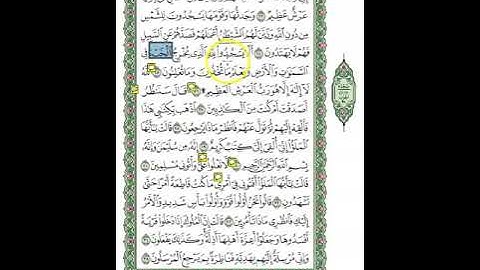 عَرْشٌ عَظِيمٌ ٢٣ وَجَدتُّهَا وَقَوْمَهَا يَسْجُدُونَ لِلشَّمْسِ
مِن دُونِ ٱللَّهِ وَزَيَّنَ لَهُمُ ٱلشَّيْطَٰنُ أَعْمَٰلَهُمْ فَصَدَّهُمْ عَنِ ٱلسَّبِيلِ
فَهُمْ لَا يَهْتَدُونَ ٢٤ أَلَّا يَسْجُدُوا۟ لِلَّهِ ٱلَّذِى يُخْرِجُ ٱلْخَبْءَ فِى
ٱلسَّمَٰوَٰتِ وَٱلْأَرْضِ وَيَعْلَمُ مَا تُخْفُونَ وَمَا تُعْلِنُونَ ٢٥ ٱللَّهُ
لَآ إِلَٰهَ إِلَّا هُوَ رَبُّ ٱلْعَرْشِ ٱلْعَظِيمِ ۩ ٢٦ قَالَ سَنَنظُرُ
أَصَدَقْتَ أَمْ كُنتَ مِنَ ٱلْكَٰذِبِينَ ٢٧ ٱذْهَب بِّكِتَٰبِى هَٰذَا
فَأَلْقِهْ إِلَيْهِمْ ثُمَّ تَوَلَّ عَنْهُمْ فَٱنظُرْ مَاذَا يَرْجِعُونَ ٢٨ قَالَتْ يَٰٓأَيُّهَا
ٱلْمَلَؤُا۟ إِنِّىٓ أُلْقِىَ إِلَىَّ كِتَٰبٌ كَرِيمٌ ٢٩ إِنَّهُۥ مِن سُلَيْمَٰنَ وَإِنَّهُۥ
بِسْمِ ٱللَّهِ ٱلرَّحْمَٰنِ ٱلرَّحِيمِ ٣٠ أَلَّا تَعْلُوا۟ عَلَىَّ وَأْتُونِى مُسْلِمِينَ ٣١
قَالَتْ يَٰٓأَيُّهَا ٱلْمَلَؤُا۟ أَفْتُونِى فِىٓ أَمْرِى مَا كُنتُ قَاطِعَةً أَمْرًا حَتَّىٰ
تَشْهَدُونِ ٣٢ قَالُوا۟ نَحْنُ أُو۟لُوا۟ قُوَّةٍ وَأُو۟لُوا۟ بَأْسٍ شَدِيدٍ وَٱلْأَمْرُ
إِلَيْكِ فَٱنظُرِى مَاذَا تَأْمُرِينَ ٣٣ قَالَتْ إِنَّ ٱلْمُلُوكَ إِذَا دَخَلُوا۟ قَرْيَةً
أَفْسَدُوهَا وَجَعَلُوٓا۟ أَعِزَّةَ أَهْلِهَآ أَذِلَّةً وَكَذَٰلِكَ يَفْعَلُونَ ٣٤
وَإِنِّى مُرْسِلَةٌ إِلَيْهِم بِهَدِيَّةٍ فَنَاظِرَةٌۢ بِمَ يَرْجِعُ ٱلْمُرْسَلُونَ ٣٥